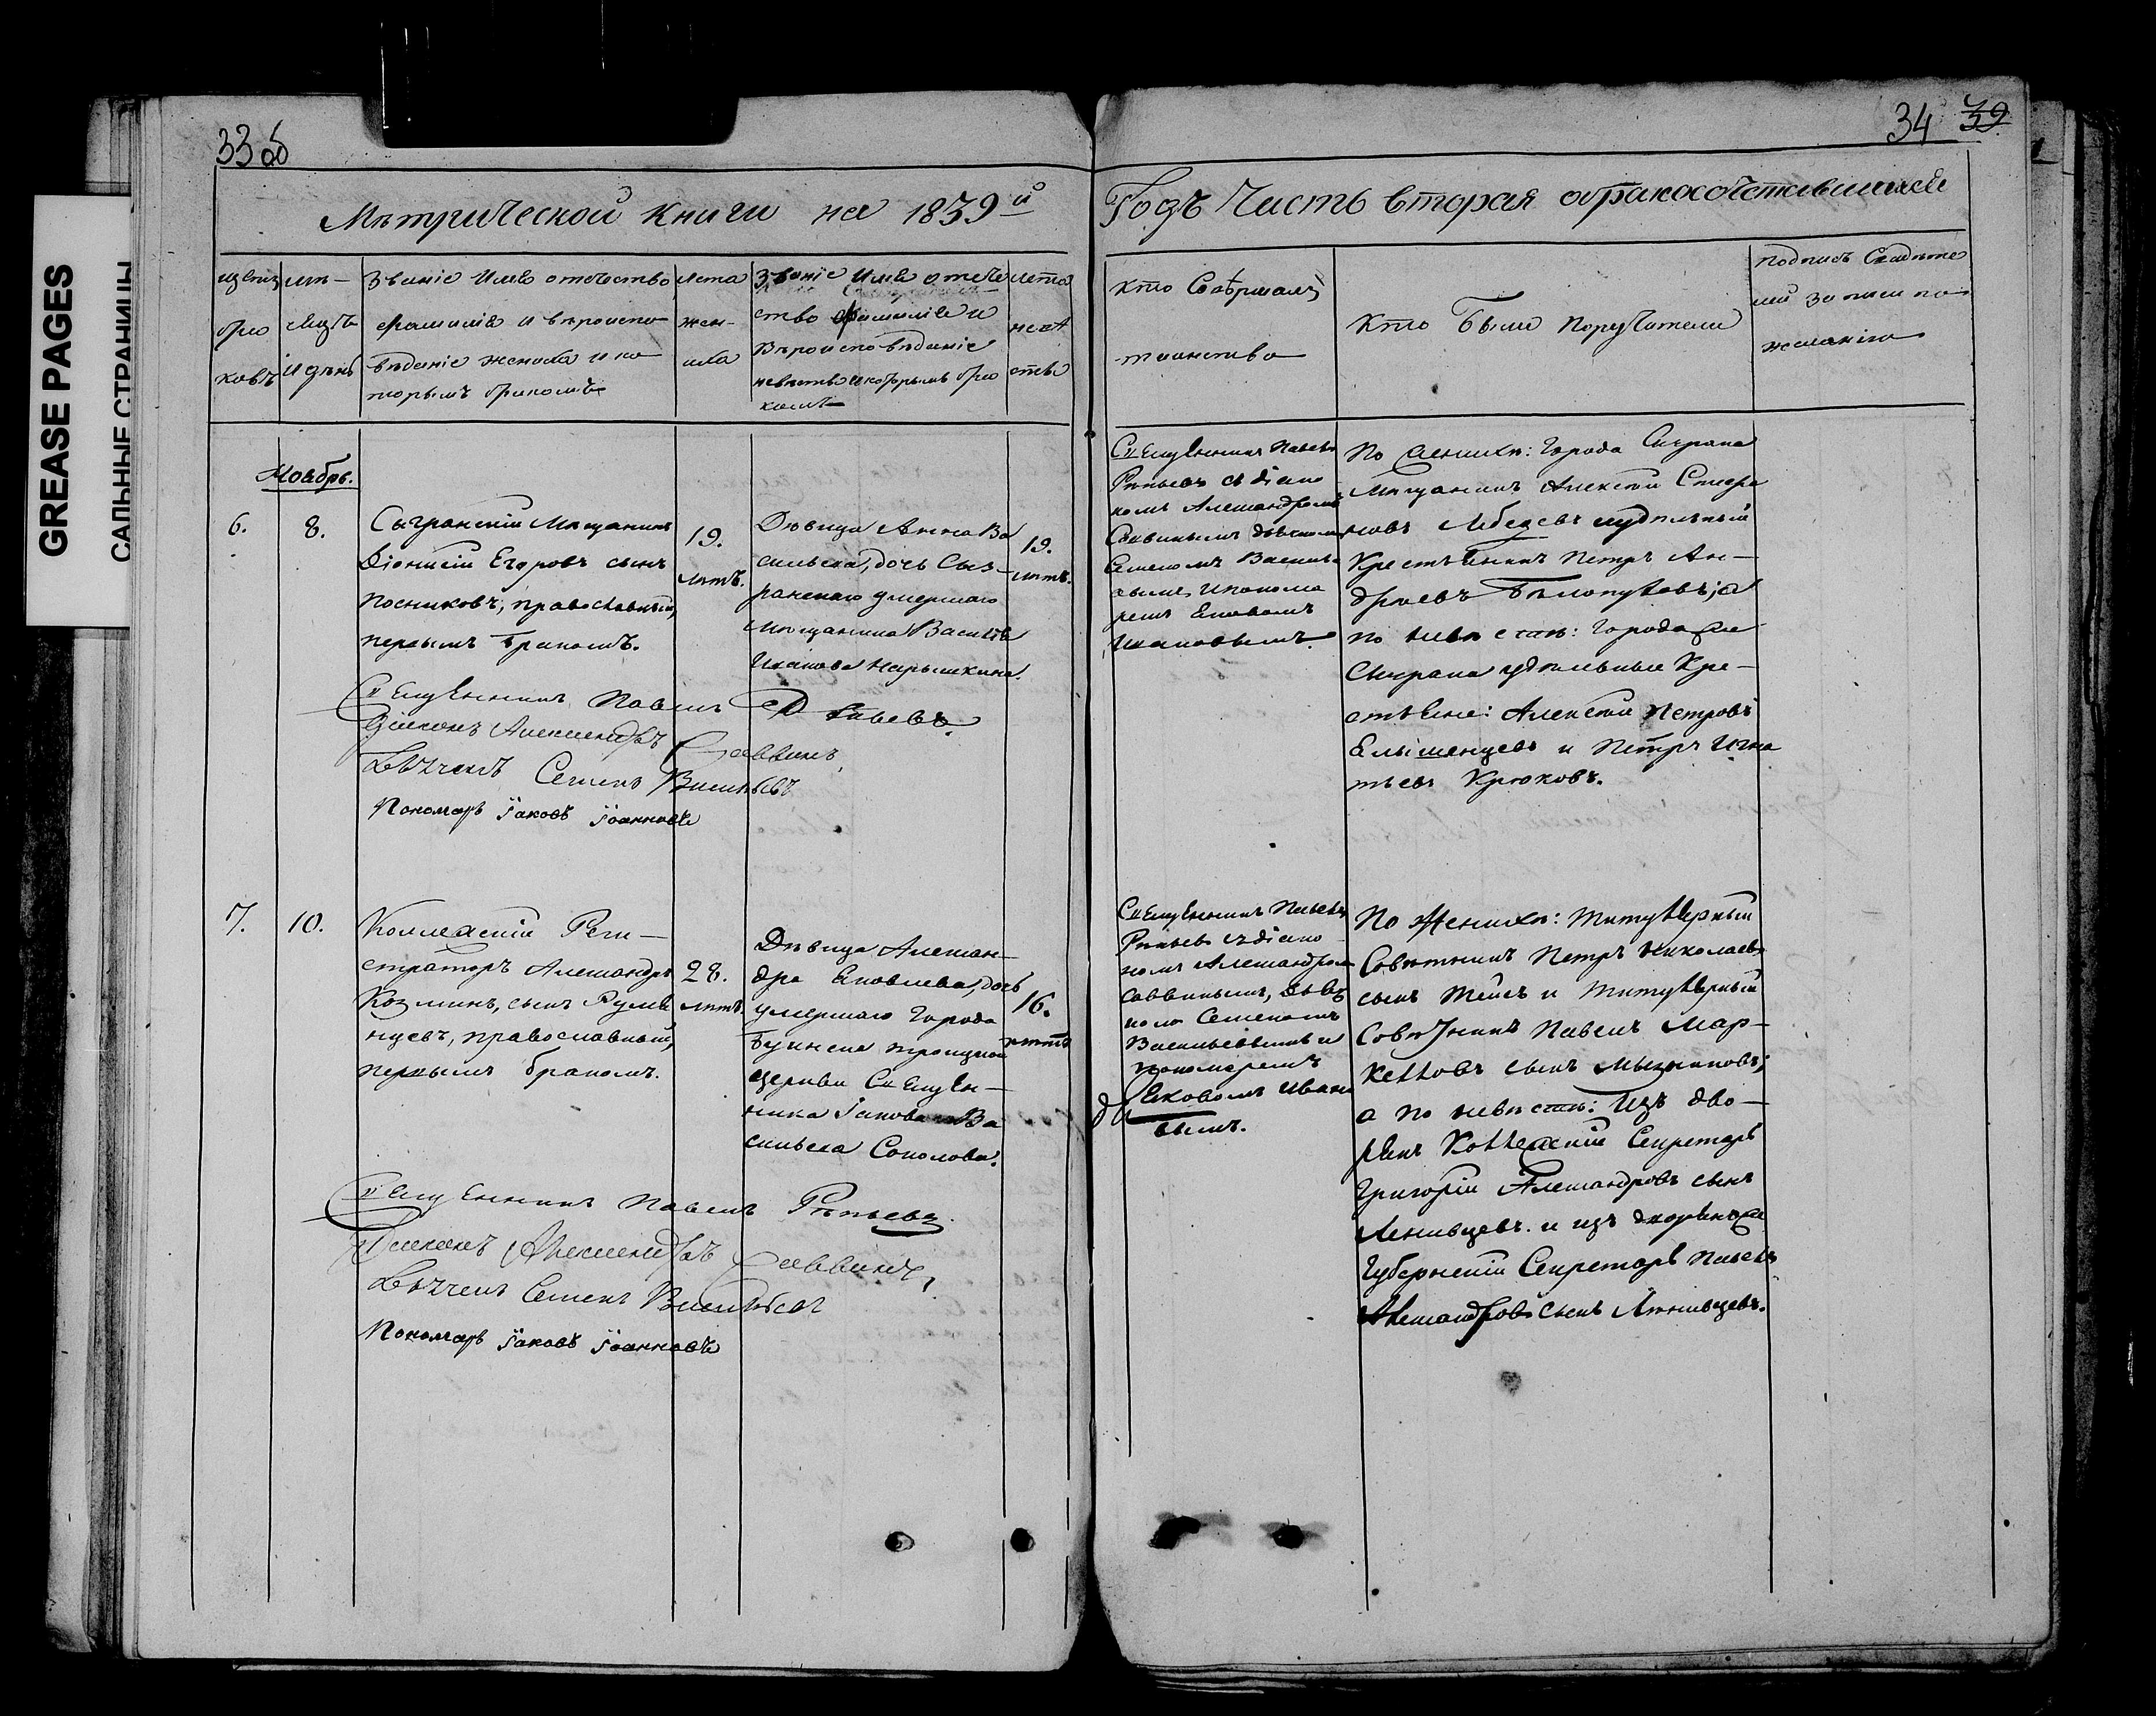 GREASE PAGES
САЛЬНЫЕ СТРАНИЦЫ
33 об
34 39
Метрической книги на 1839й
Годъ Часть вторая обракосочетавшихся
Званіе Имя отечество
фамилія и вѣроиспо
вѣданіе жениха и ко
торымъ бракомъ
лѣта
жен-
иха
Званіе Имя отече
ство фамилія и
Вѣроисповѣданіе
невѣсты и которымъ бра
комъ
лѣта
невѣ
сты
Кто Совѣршалъ
таинство
Кто были Поручители
подпись Свидѣте
лей записи по
желанію
Ноябрь.
6.
8.
Сызранскій Мѣщанинъ
Діонисій Егоровъ сынъ
Посниковъ, православный,
первымъ бракомъ.
19.
лѣтъ.
Дѣвица Анна Ва
сильева, дочь Сыз-
ранскаго умершаго
мѣщанина Василія
Иванова Нарышкина.
19.
лѣтъ.
Священникъ Павелъ
Рѣпьевъ съ діако
номъ Александромъ
Саввинымъ дьячкомъ
Семеномъ Василье
вымъ, и понома
ремъ Яковомъ
Ивановымъ.
По женихѣ: Города Сызрана
Мѣщанинъ Алексѣй Степа
новъ Лебедевъ и удѣльный
Крестьянинъ Петръ Ан-
дреевъ Бѣлопуховъ; а
по невѣстѣ: Города
Сызрана удѣльные Кре-
стьяне: Алексѣй Петровъ
Елышенцевъ и Петръ Игна
тьевъ Крюковъ.
Священникъ Павелъ Рѣпьевъ.
Діаконъ Александръ Саввинъ,
Дьячекъ Семенъ Васильевъ
Пономарь Іаковъ Іоанновъ
7.
10.
Коллежскій Реги-
страторъ Александръ
Козминъ, сынъ Румя
нцевъ, православный,
первымъ бракомъ.
28.
лѣтъ.
Дѣвица Алексан-
дра Яковлева, дочь
умершаго Города
Буинска троицкой
церкви Священ-
ника Іакова Ва
сильева Соколова.
16.
лѣтъ
Священникъ Павелъ
Рѣпьевъ съ діако
номъ Александромъ
Саввинымъ, дьяч
комъ Семеномъ
Васильевымъ и
пономаремъ
Яковомъ Ивано
вымъ.
По Женихѣ: титулярный
Совѣтникъ Петръ Николаевъ
сынъ Тейсъ и титулярный
Совѣтникъ Павелъ Мар-
келловъ сынъ Мызниковъ;
а по невѣстѣ: Изъ дво-
рянъ Коллежскій Секретарь
Григорій Александровъ сынъ
Ленивцевъ. и изъ дворянъ же
Губернскій Секретарь Павелъ
Александровъ сынъ Лѣнивцевъ.
Священникъ Павелъ Рѣпьевъ.
Діаконъ Александръ Саввинъ,
Дьячекъ Семенъ Васильевъ
Пономарь Іаковъ Іоанновъ